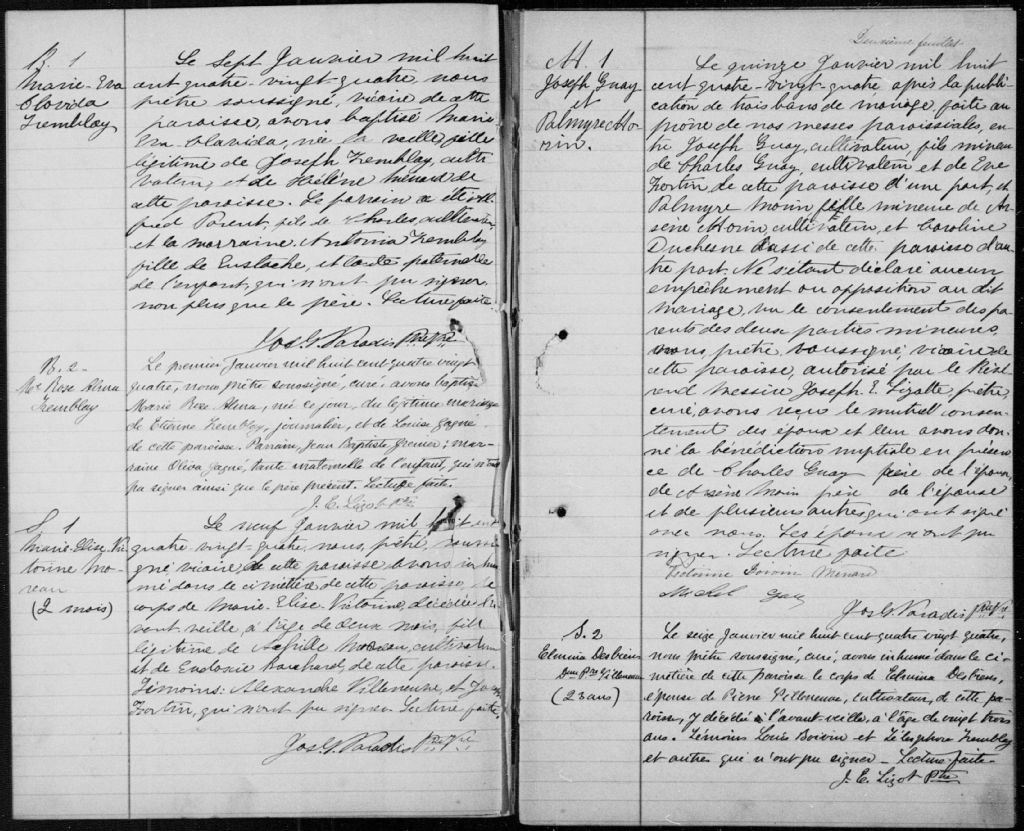 B. 1
Marie-Eva
Olavida
Tremblay
Le sept Janvier mil huit
cent quatre-vingt-quatre nous
prêtre soussigné, vicaire de cette
paroisse, avons baptisé Marie
Eva Olavida, née la veille, fille
légitime de Joseph Tremblay, culti-
vateur, et de Hélène Ménard de
cette paroisse. Le parrain a été Al-
fred Parent, fils de Charles, cultivateur,
et la marraine, Antonia Tremblay
fille de Eustache, et tante paternelle
de l'enfant, qui n'ont pu signer
non plus que le père. Lecture faite
Jos G. Paradis Ptre Vre
B. 2
Me Rose Alma
Tremblay
Le premier Janvier mil huit cent quatre vingt
quatre, nous prêtre soussigné, curé, avons baptisé
Marie Rose Alma, née ce jour, du légitime mariage
de Etienne Tremblay, journalier, et de Louise Gagné
de cette paroisse. Parrain, Jean Baptiste Grenier; mar-
raine Oliva Gagné, tante maternelle de l'enfant, qui n'ont
pu signer ainsi que le père présent. Lecture faite.
J. E. Lizot Ptre
S. 1
Marie-Elise-Vic
torine Mo-
reau
(2 mois)
Le neuf Janvier mil huit cent
quatre-vingt-quatre, nous, prêtre, soussi-
gné vicaire, de cette paroisse avons inhu-
mé dans le cimetière de cette paroisse le
corps de Marie-Elise Victorine, décédée l'a-
vant-veille, à l'âge de deux mois, fille
légitime de Achille Moreau, cultivateur
et de Eudoxie Bouchard de cette paroisse.
Témoins: Alexandre Villeneuve, et
Fortin, qui n'ont pu signer Lecture faite.
Jos G. Paradis Ptre Vre
Deuxième feuillet
M. 1
Joseph Guay
et
Palmyre Mo-
rin.
Le quinze Janvier mil huit
cent quatre-vingt-quatre, après la publi-
cation de trois bans de mariage, faite au
prône de nos messes paroissiales, en-
tre Joseph Guay, cultivateur, fils mineur
de Charles Guay, cultivateur et de Eve
Fortin, de cette paroisse d'une part, et
Palmyre Morin fille mineure de Ar-
sène Morin, cultivateur, et Caroline
Duchesne aussi de cette paroisse d'au-
tre part. Ne s'étant déclaré aucun
empêchement ou opposition au dit
mariage, vu le consentement des pa-
rents des deux parties mineures,
nous, prêtre, soussigné, vicaire de
cette paroisse, autorisé par le Révé-
rend Messire Joseph E. Lizotte, prêtre,
curé, avons reçu le mutuel consen-
tement des époux et leur avons don-
né la bénédiction nuptiale en présen-
ce de Charles Guay père de l'époux,
de Arsène Morin père de l'épouse
et de plusieurs autres qui ont signé
avec nous. Les époux n'ont pu
signer. Lecture faite
Victorine Boivin Menard
Michel Guay
Jos G. Paradis Ptre Vre
S. 2
Elmina Desbiens
Dme Pre Villeneuve
(23 ans)
Le seize Janvier mil huit cent quatre vingt quatre,
nous prêtre soussigné, curé, avons inhumé dans le ci-
metière de cette paroisse le corps de Elmina Desbiens,
épouse de Pierre Villeneuve, cultivateur, de cette pa-
roisse, y décédée l'avant-veille, à l'âge de vingt trois
ans. Témoins Louis Boivin et Télesphore Tremblay
et autres qui n'ont pu signer - Lecture faite -
J. E. Lizot Ptre